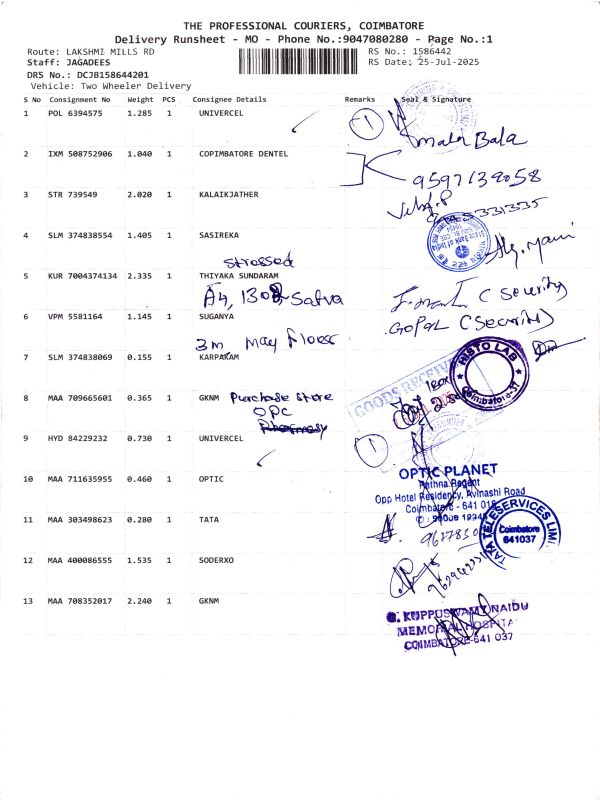 THE PROFESSIONAL COURIERS, COIMBATORE
Delivery Runsheet - MO - Phone No.:9047080280 - Page No.:1
Route: LAKSHMI MILLS RD
RS No.: 1586442
Staff: JAGADEES
RS Date: 25-Jul-2025
DRS No.: DCJB158644201
Vehicle: Two Wheeler Delivery
S No Consignment No Weight PCS Consignee Details Remarks Seal & Signature
1 POL 6394575 1.285 1 UNIVERCEL
1
Mala Bala
2 IXM 508752906 1.040 1 COPIMBATORE DENTEL
9597139058
3 STR 739549 2.020 1 KALAIKJATHER
4 SLM 374838554 1.405 1 SASIREKA
5 KUR 7004374134 2.335 1 THIYAKA SUNDARAM
A4, 1302 Satva
(Security)
6 VPM 5581164 1.145 1 SUGANYA
GOPAL (Security)
3m May Floor
7 SLM 374838069 0.155 1 KARPAKAM
HISTO LAB
Coimbatore-37
GOODS RECEIVED
8 MAA 709665601 0.365 1 GKNM Purchase store
OPC
Pharmacy
9 HYD 84229232 0.730 1 UNIVERCEL
1
10 MAA 711635955 0.460 1 OPTIC
OPTIC PLANET
Rathna Regent
Opp Hotel Residency, Avinashi Road
Coimbatore - 641 018
11 MAA 303498623 0.280 1 TATA
TATA TELESERVICES LIMI
Coimbatore
641037
12 MAA 400086555 1.535 1 SODERXO
13 MAA 708352017 2.240 1 GKNM
G. KUPPUSWAMY NAIDU
MEMORIAL HOSPITAL
COIMBATORE-641 037